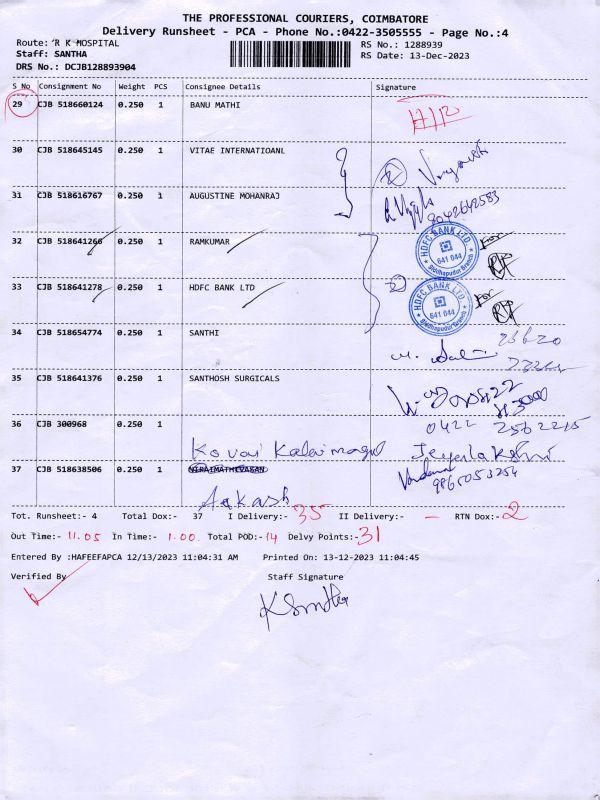 THE PROFESSIONAL COURIERS, COIMBATORE
Delivery Runsheet - PCA - Phone No.:0422-3505555 - Page No.:4
Route: R K HOSPITAL
RS No.: 1288939
Staff: SANTHA
RS Date: 13-Dec-2023
DRS No.: DCJB128893904
S No Consignment No Weight PCS Consignee Details Signature
29 CJB 518660124 0.250 1 BANU MATHI
30 CJB 518645145 0.250 1 VITAE INTERNATIOANL
31 CJB 518616767 0.250 1 AUGUSTINE MOHANRAJ
9042642583
32 CJB 518641266 0.250 1 RAMKUMAR
HDFC BANK LTD. 641 044 Siddhapudur Branch
for
33 CJB 518641278 0.250 1 HDFC BANK LTD
HDFC BANK LTD. 641 044 Siddhapudur Branch
for
34 CJB 518654774 0.250 1 SANTHI
35 CJB 518641376 0.250 1 SANTHOSH SURGICALS
36 CJB 300968 0.250 1
0422 2562215
Kovai Kalaimagal Jeyalakshmi
37 CJB 518638506 0.250 1 NIRAIMATHEVAGAN
Vandana
9865053254
Aakash
Tot. Runsheet:- 4 Total Dox:- 37 I Delivery:- 35 II Delivery:- - RTN Dox:- 2
Out Time:- 11.05 In Time:- 1.00. Total POD:- 14 Delvy Points:- 31
Entered By :HAFEEFAPCA 12/13/2023 11:04:31 AM Printed On: 13-12-2023 11:04:45
Verified By Staff Signature